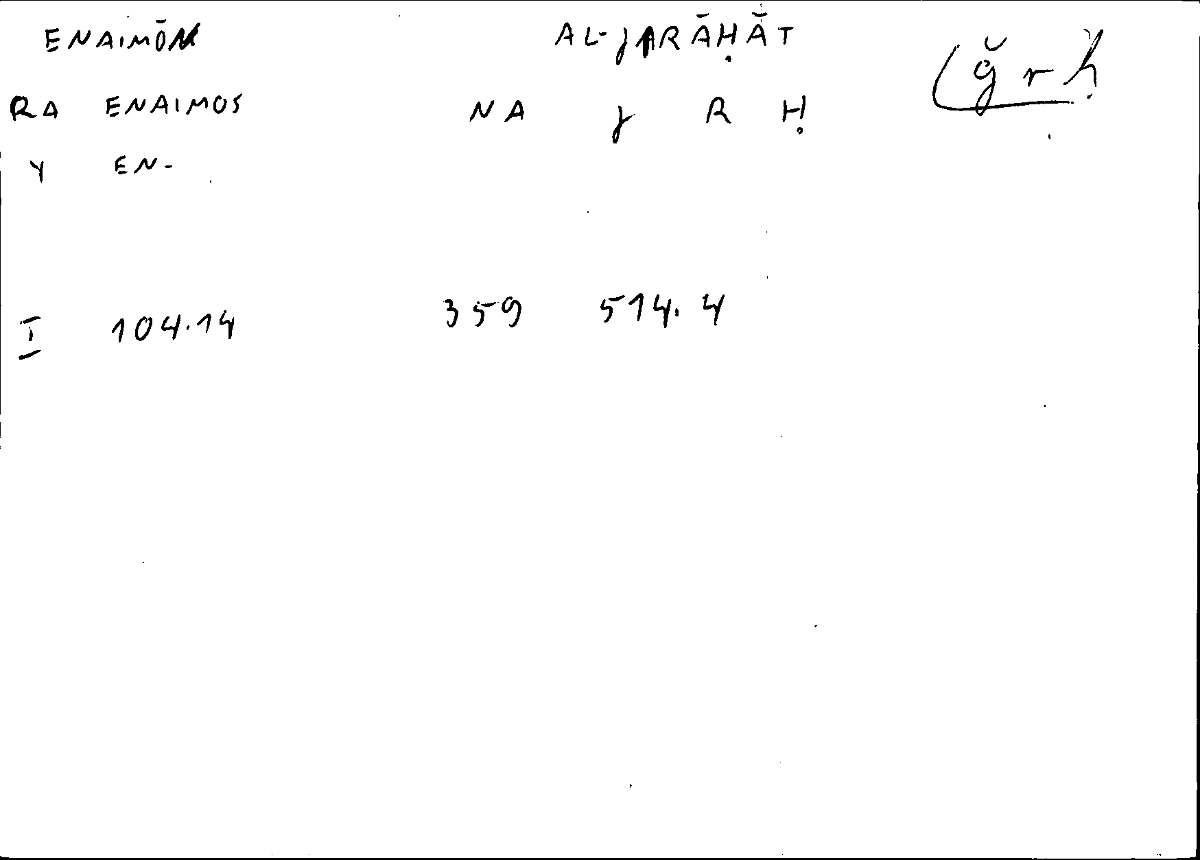 ENAIMŌN AL-JARĀḤĀT ğrḥ
RA ENAIMOS NA J R Ḥ
Y EN-
I 104.14 359 514.4